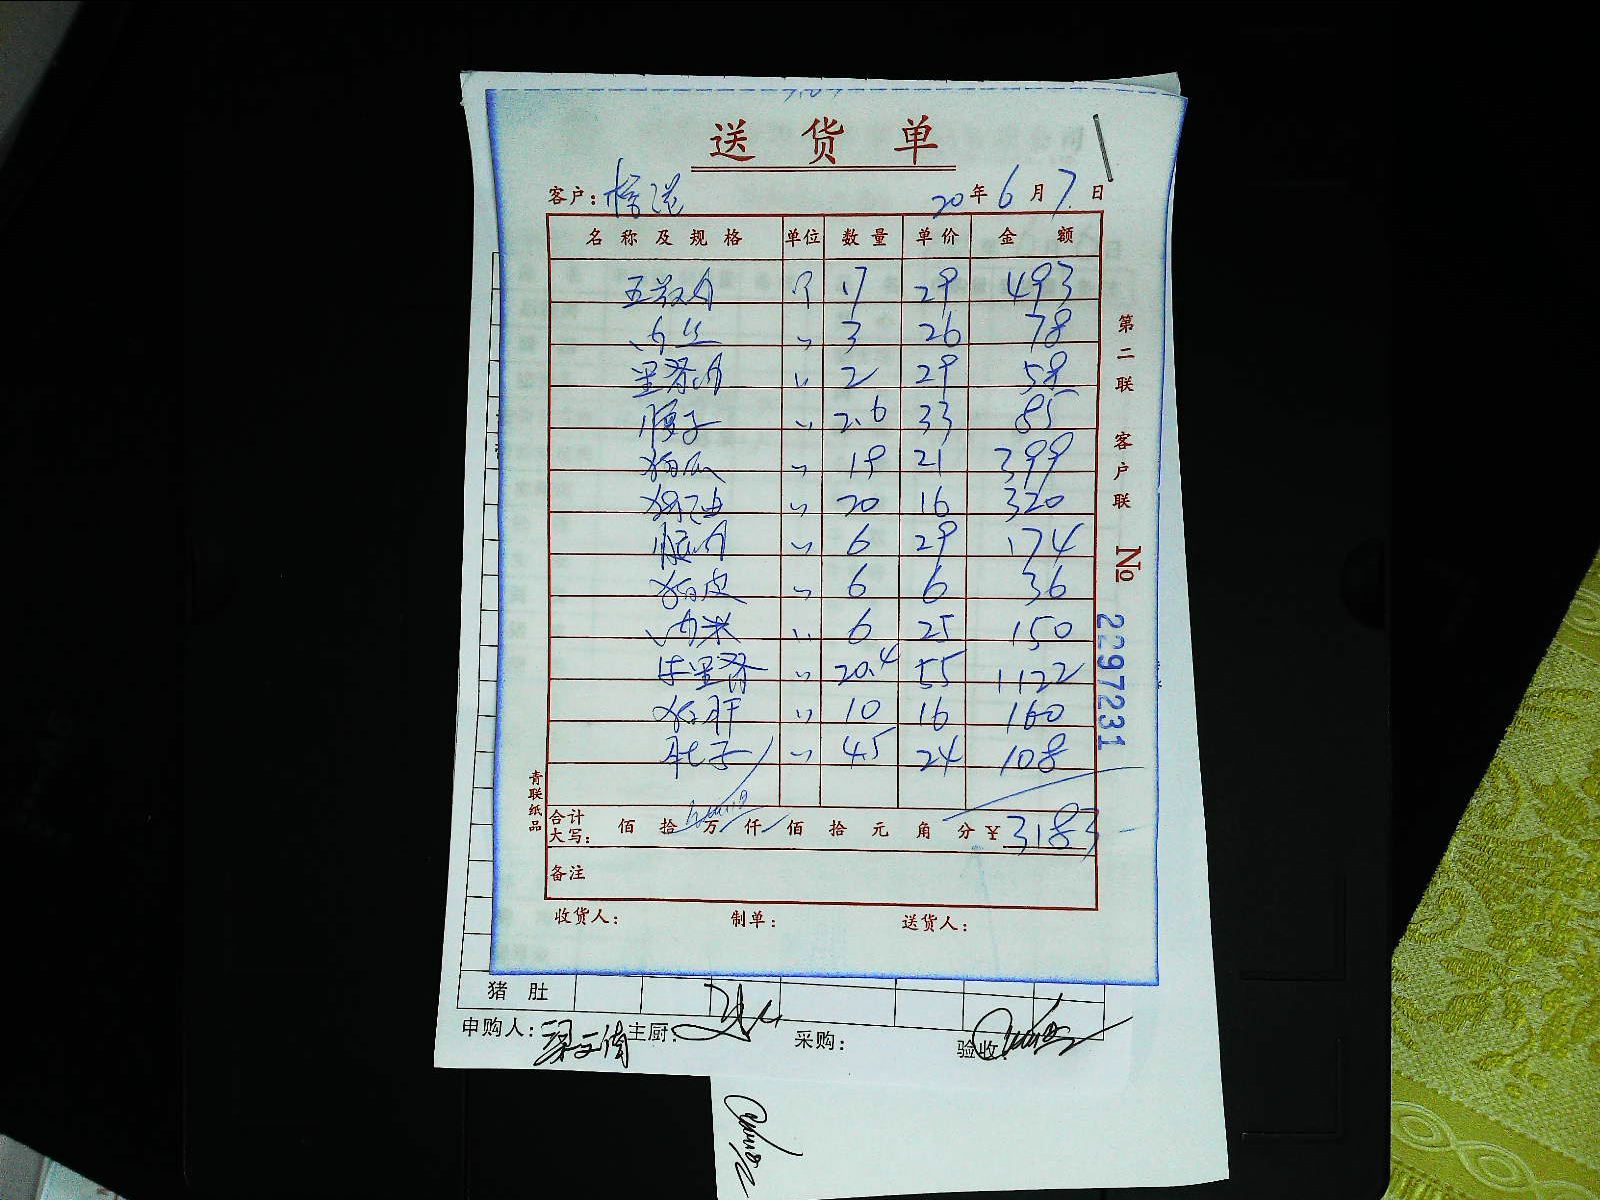 送货单
客户: 20年6月7日
名称及规格 单位 数量 单价 金额
五花肉 斤 17 29 493
肉丝 〃 3 26 78
里脊肉 〃 2 29 58
腰子 〃 2.6 33 85
〃 19 21 399
猪油 〃 20 16 320
腿肉 〃 6 29 174
猪皮 〃 6 6 36
肉米 〃 6 25 150
牛里脊 〃 20.4 55 1122
猪肝 〃 10 16 160
肚子 〃 4.5 24 108
合计大写: 佰 拾 万 仟 佰 拾 元 角 分 ¥3183
备注
收货人: 制单: 送货人:
青联纸品
第二联 客户联
№ 2297231
猪肚
申购人: 主厨: 采购: 验收: